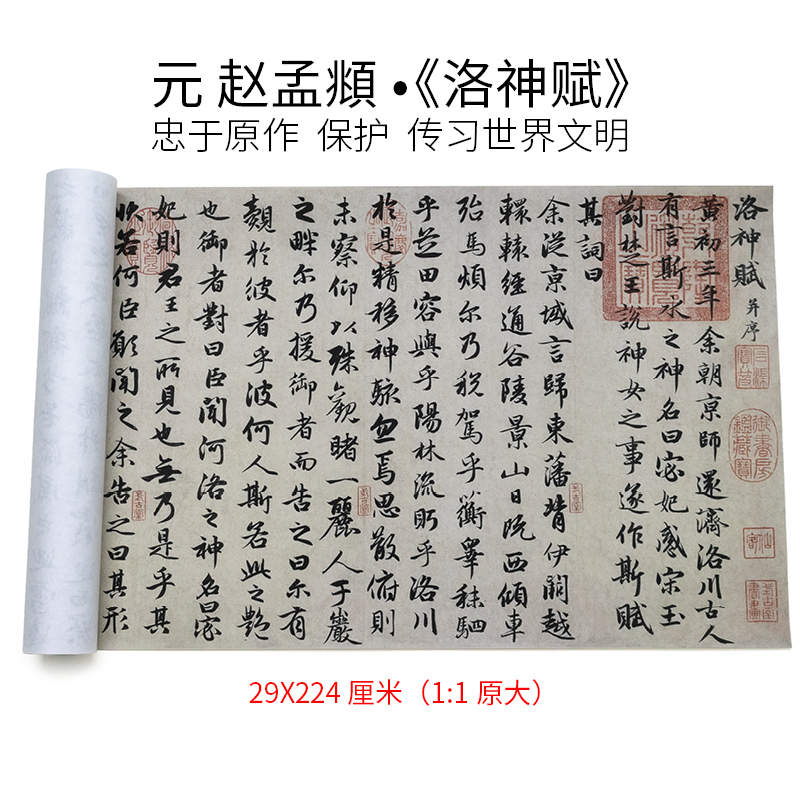 元 赵孟頫·《洛神赋》
忠于原作 保护 传习世界文明
洛神賦 并序
黃初三年余朝京師還濟洛川古人
有言斯水之神名曰宓妃感宋玉
對楚王說神女之事遂作斯賦
其詞曰
余從京域言歸東藩背伊闕越
轘轅經通谷陵景山日既西傾車
殆馬煩尔乃稅駕乎蘅皋秣駟
乎芝田容與乎陽林流眄乎洛川
於是精移神駭忽焉思散俯則
未察仰以殊觀睹一麗人于巖
之畔尔乃援御者而告之曰尔有
覿於彼者乎彼何人斯若此之艷
也御者對曰臣聞河洛之神名曰宓
妃則君王之所見也無乃是乎其
狀若何臣願聞之余告之曰其形
石渠寶笈
御書房鑑藏寶
29X224 厘米（1:1 原大）